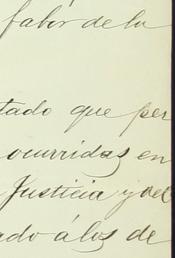 fabor de la
tado que per
ocurridas en
Justicia y del
ado á los de